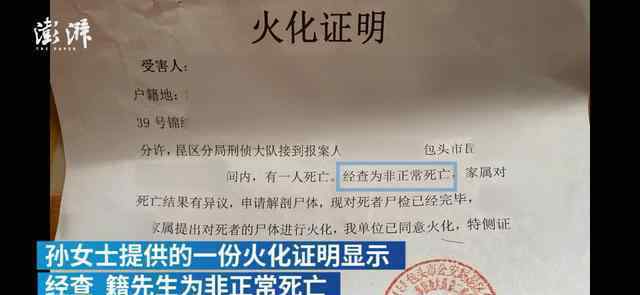 澎湃
THE PAPER
火化证明
受害人:
户籍地:
39号锦
分许,昆区分局刑侦大队接到报案人 包头市昆
间内,有一人死亡。经查为非正常死亡,家属对
死亡结果有异议,申请解剖尸体,现对死者尸检已经完毕,
家属提出对死者的尸体进行火化,我单位已同意火化,特侧证
孙女士提供的一份火化证明显示
经查 籍先生为非正常死亡
包头市公安